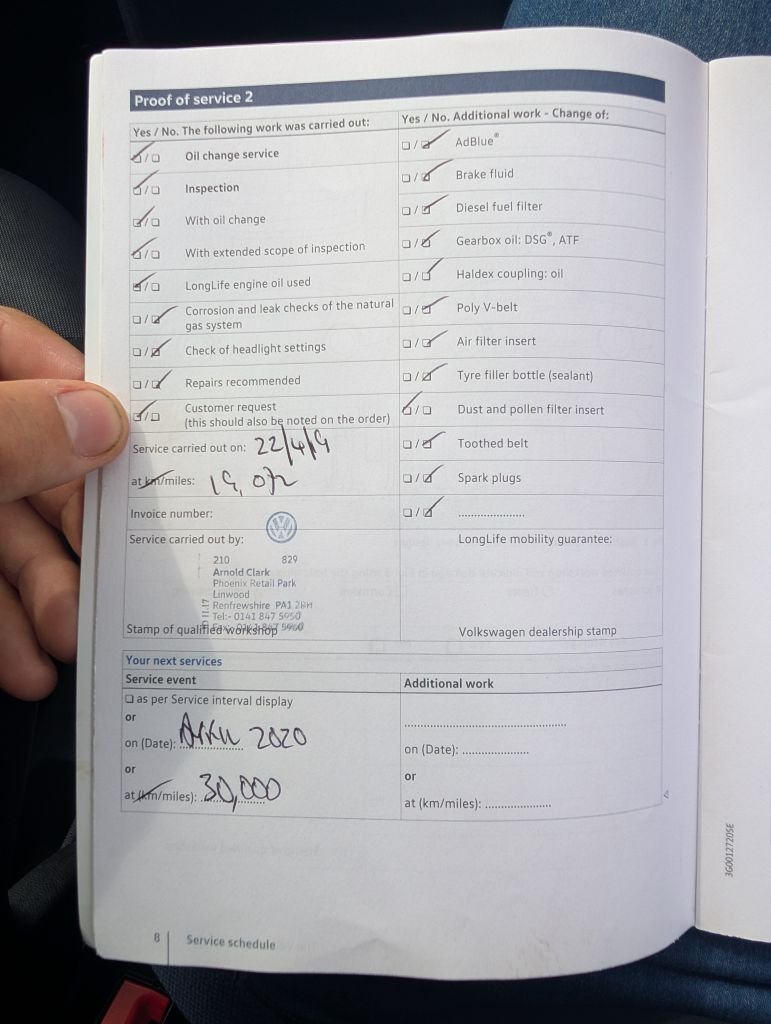 Proof of service 2
Yes / No. The following work was carried out:
Oil change service
Inspection
With oil change
With extended scope of inspection
LongLife engine oil used
Corrosion and leak checks of the natural
gas system
Check of headlight settings
Repairs recommended
Customer request
(this should also be noted on the order)
Service carried out on: 22/4/19
at km/miles:
Invoice number:
Service carried out by:
210 829
Arnold Clark
Phoenix Retail Park
Linwood
Renfrewshire PA1 2BH
Tel:- 0141 847 5050
Stamp of qualified workshop
Yes / No. Additional work - Change of:
AdBlue®
Brake fluid
Diesel fuel filter
Gearbox oil: DSG®, ATF
Haldex coupling: oil
Poly V-belt
Air filter insert
Tyre filler bottle (sealant)
Dust and pollen filter insert
Toothed belt
Spark plugs
....................
LongLife mobility guarantee:
Volkswagen dealership stamp
Your next services
Service event
as per Service interval display
or
on (Date): 2020
or
at (km/miles): 30,000
Additional work
........................................
on (Date): ....................
or
at (km/miles): ....................
8 Service schedule
3G0012720SE